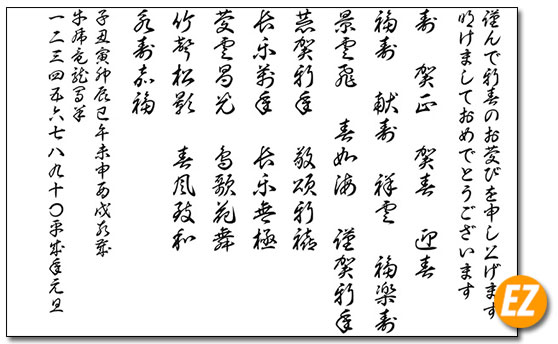 謹んで新春のお慶びを申し上げます
明けましておめでとうございます
寿 賀正 賀春 迎春
福寿 献寿 祥雲 福楽寿
景雲飛 春如海 謹賀新年
恭賀新年 敬頌新禧
長楽萬年 長楽無極
慶雲昌光 鳥歌花舞
竹聲松影 春風致和
永寿嘉福
子丑寅卯辰巳午未申酉戌亥歳
牛虎竜龍馬羊
一二三四五六七八九十〇平成年元旦
EZ